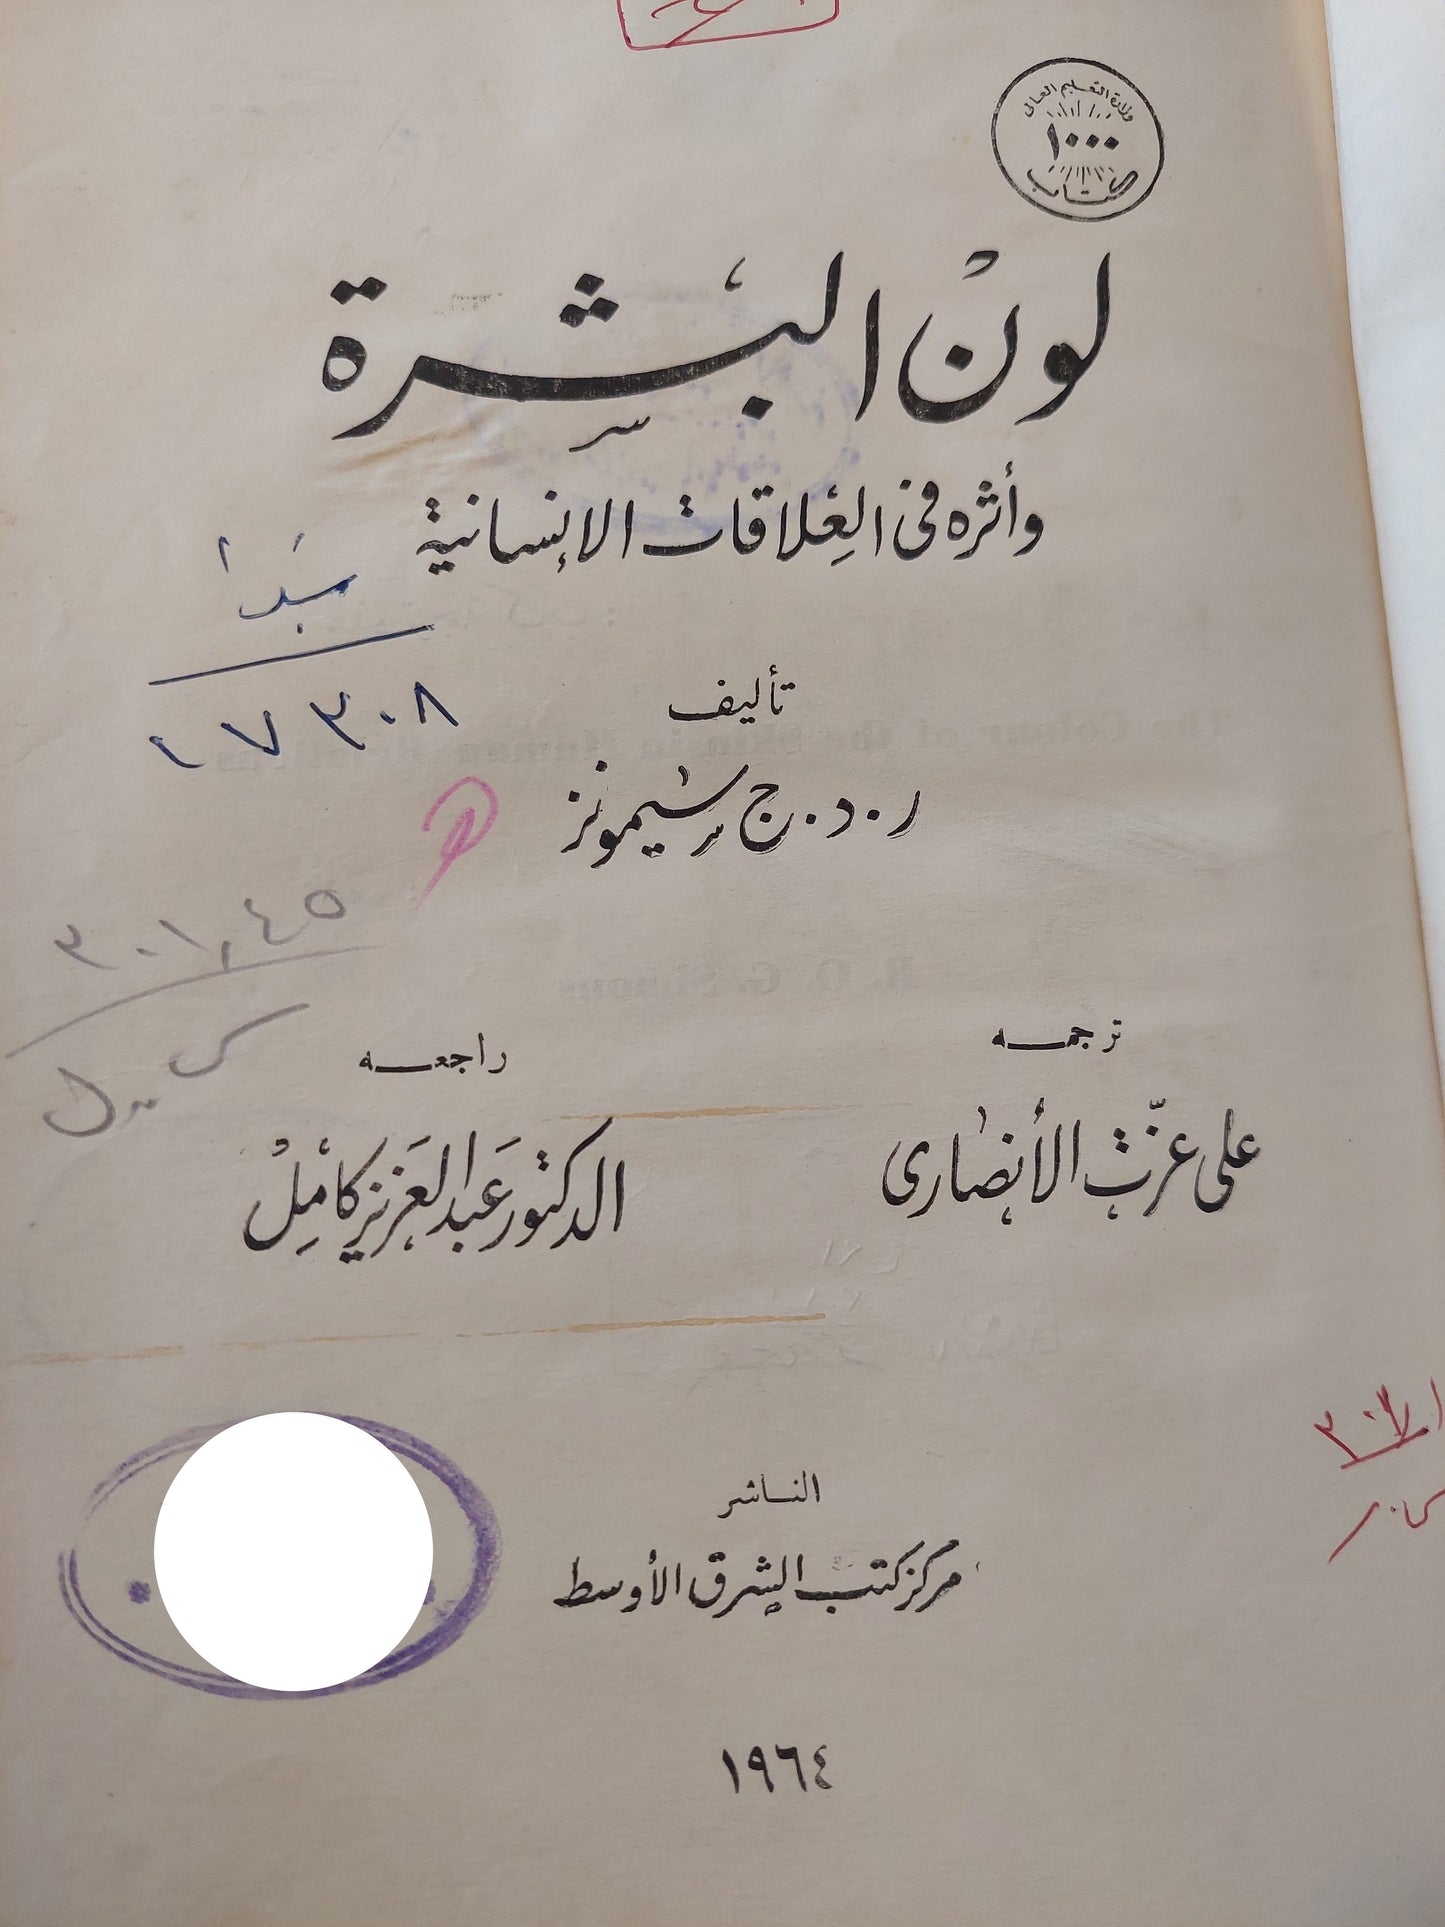 وزارة التعليم العالى
١٠٠٠
كتاب
لون البشرة
وأثره فى العلاقات الإنسانية
١٧٣٠٨
تأليف
ر.د.ج سيمونز
٣٠١,٤٥
ترجمه
راجعه
على عزت الأنصارى
الدكتور عبد العزيز كامل
الناشر
مركز كتب الشرق الأوسط
١٩٦٤